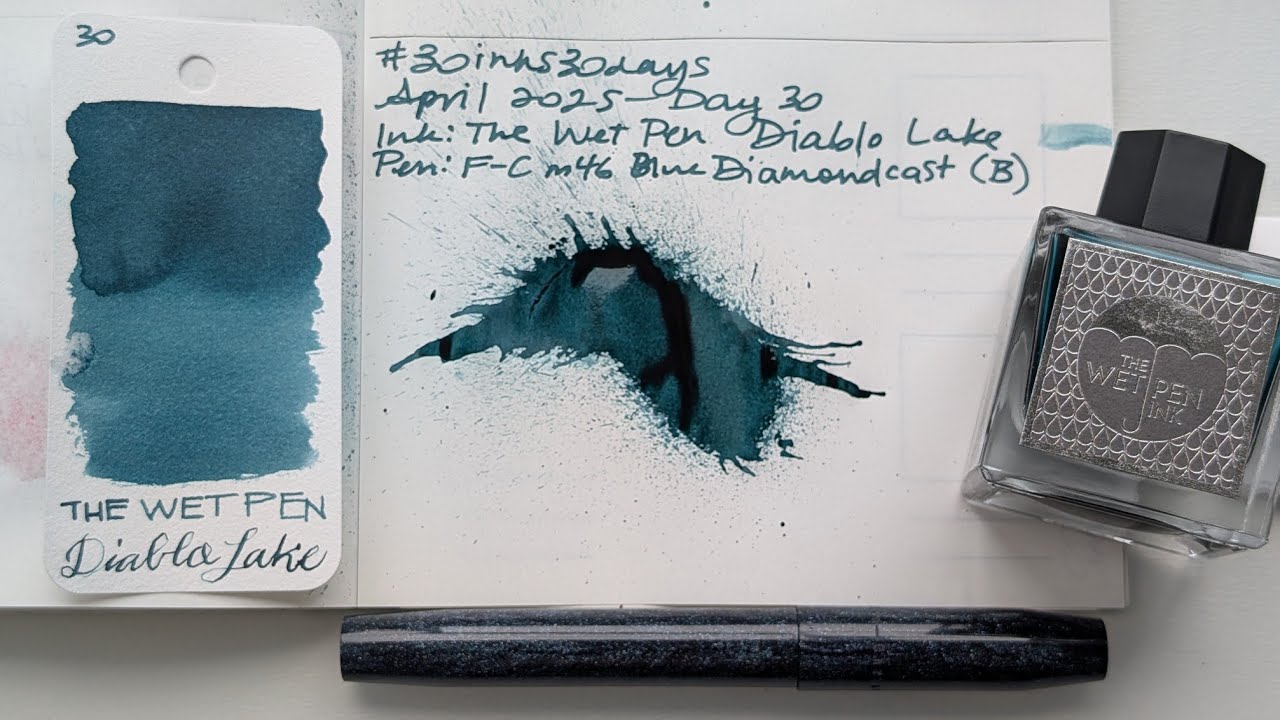 30
THE WET PEN
Diablo Lake
#30inks30days
April 2025-Day 30
Ink: The Wet Pen Diablo Lake
Pen: F-C m46 Blue Diamondcast (B)
THE
WET PEN
INK